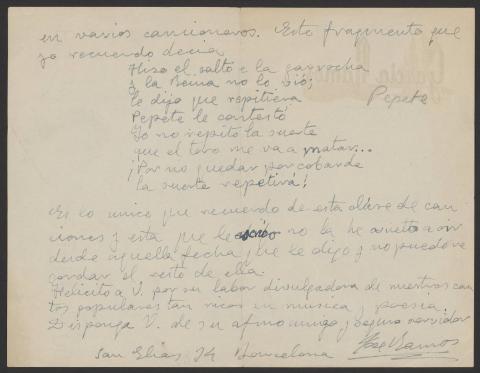 en varios cancioneros. Este fragmento que
yo recuerdo decía
Hizo el salto e la garrocha
y la Reina no lo vió;
le dijo que repitiera Pepete
Pepete le contestó
Yo no repito la suerte
que el toro me va a matar...
¡Por no quedar por cobarde
la suerte repetirá!
Es lo unico que recuerdo de esta clase de can
ciones y esta que le no la he vuelto a oir
desde aquella fecha que le digo y no puedo re
cordar el resto de ella.
Felicito a V. por su labor divulgadora de nuestros can
tos populares tan ricos en musica y poesia.
Disponga V. de su afmo amigo y seguro servidor
San Elias 24 Barcelona José Ramos